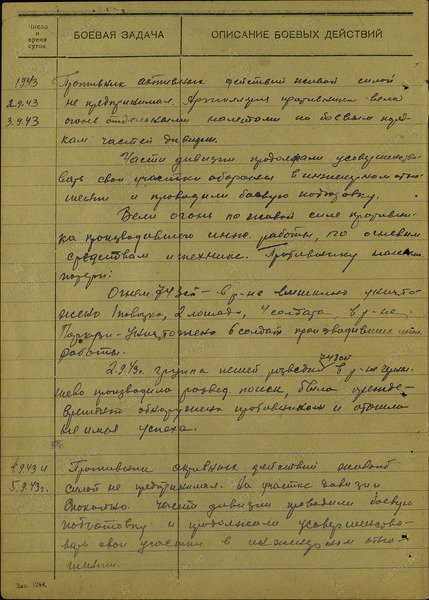 Число и время суток
БОЕВАЯ ЗАДАЧА
ОПИСАНИЕ БОЕВЫХ ДЕЙСТВИЙ
1943
Противник активных действий живой силой
2.9.43 не предпринимал. Артиллерия противника вела
3.9.43 огонь отдельными налетами по боевым поряд-
кам частей дивизии.
Части дивизии продолжали усовершенство-
вать свои участки обороны в инженерном отно-
шении и проводили боевую подготовку.
Вели огонь по живой силе противни-
ка производившего инж. работы, по огневым
средствам и технике. Противнику
потери:
Огнем 74 зсп - в р-не уничто-
жено 1 повозка, 2 лошади, 4 солдата, в р-не
- уничтожено 6 солдат производивших инж.
работы.
2.9.43г. группа пешей разведки 74 зсп в р-не
производила развед. поиск, была прежде-
временно обнаружена противником и отошла
не имея успеха.
4.9.43 и Противник активных действий живой
5.9.43г. силой не предпринимал. На участке дивизии
спокойно. Части дивизии проводили боевую
подготовку и продолжали усовершенство-
вать свои участки в инженерном отно-
шении.
Зак. 1264.